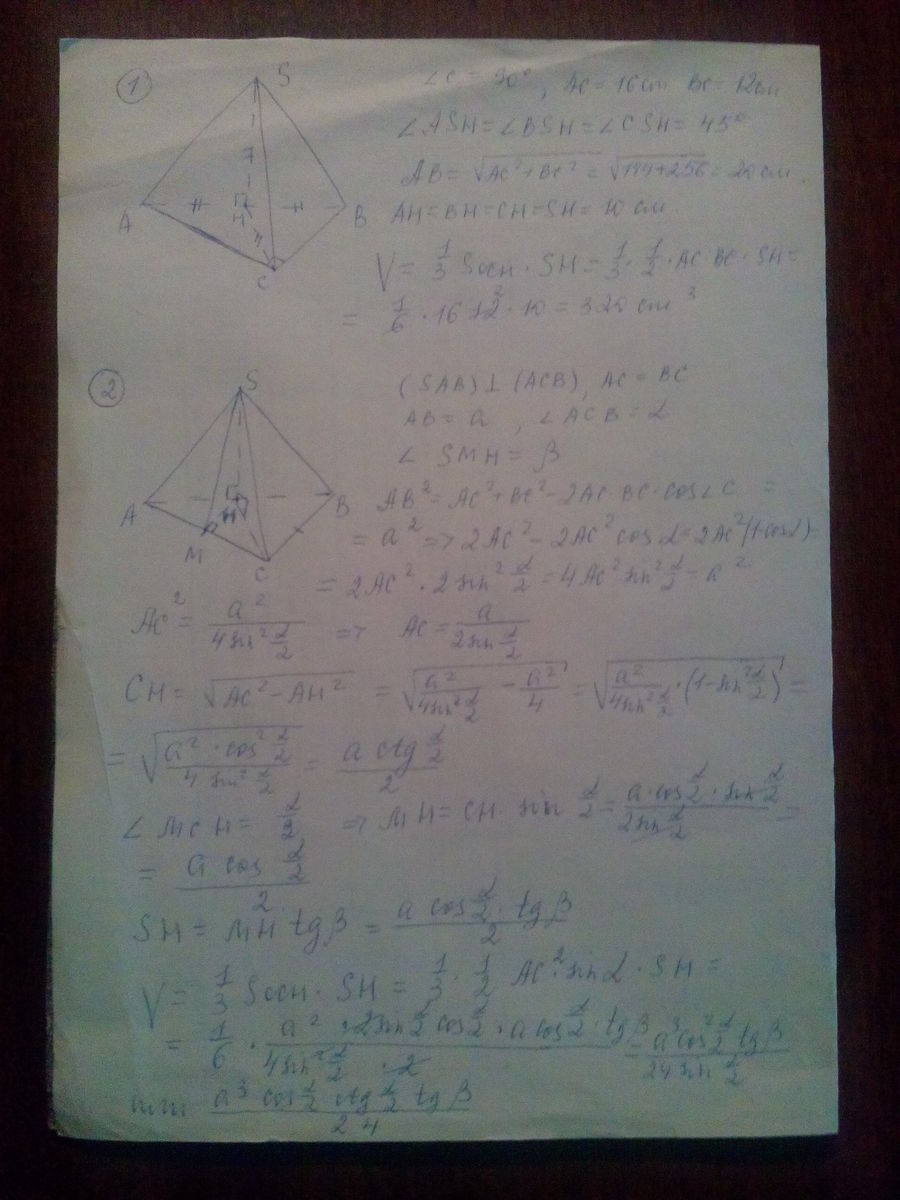 1
S
A
B
C
H
7
∠C = 90°, AC = 16 cm BC = 12 см
∠ASH = ∠BSH = ∠CSH = 45°
AB = √(AC² + BC²) = √(144 + 256) = 20 см.
AH = BH = CH = SH = 10 см.
V = 1/3 Sосн · SH = 1/3 · 1/2 · AC · BC · SH =
= 1/6 · 16 12² · 10 = 320 cm³
2
S
A
B
M
H
C
(SAB) ⊥ (ACB), AC = BC
AB = a, ∠ACB = α
∠ SMH = β
AB² = AC² + BC² - 2AC · BC · cos∠C =
= a² => 2AC² - 2AC² cos α = 2AC² (1-cosα) =
= 2AC² · 2 sin² α/2 = 4AC² sin² α/2 = a²
AC² = a²/(4 sin² α/2) => AC = a/(2 sin α/2)
CH = √(AC² - AH²) = √(a²/(4 sin² α/2) - a²/4) = √(a²/(4 sin² α/2) · (1 - sin² α/2)) =
= √(a² · cos² α/2 / (4 sin² α/2)) = a ctg α/2 / 2
∠ MCH = α/2 => MH = CH · sin α/2 = a · cos α/2 · sin α/2 / (2 sin α/2) =
= a cos α/2 / 2
SH = MH tg β = a cos α/2 · tg β / 2
V = 1/3 Sосн · SH = 1/3 · 1/2 AC² · sin α · SH =
= 1/6 · a² · 2 sin α/2 cos α/2 · a cos α/2 · tg β / (4 sin² α/2 · 2) = a³ cos² α/2 tg β / (24 sin α/2)
или a³ cos α/2 ctg α/2 tg β / 24